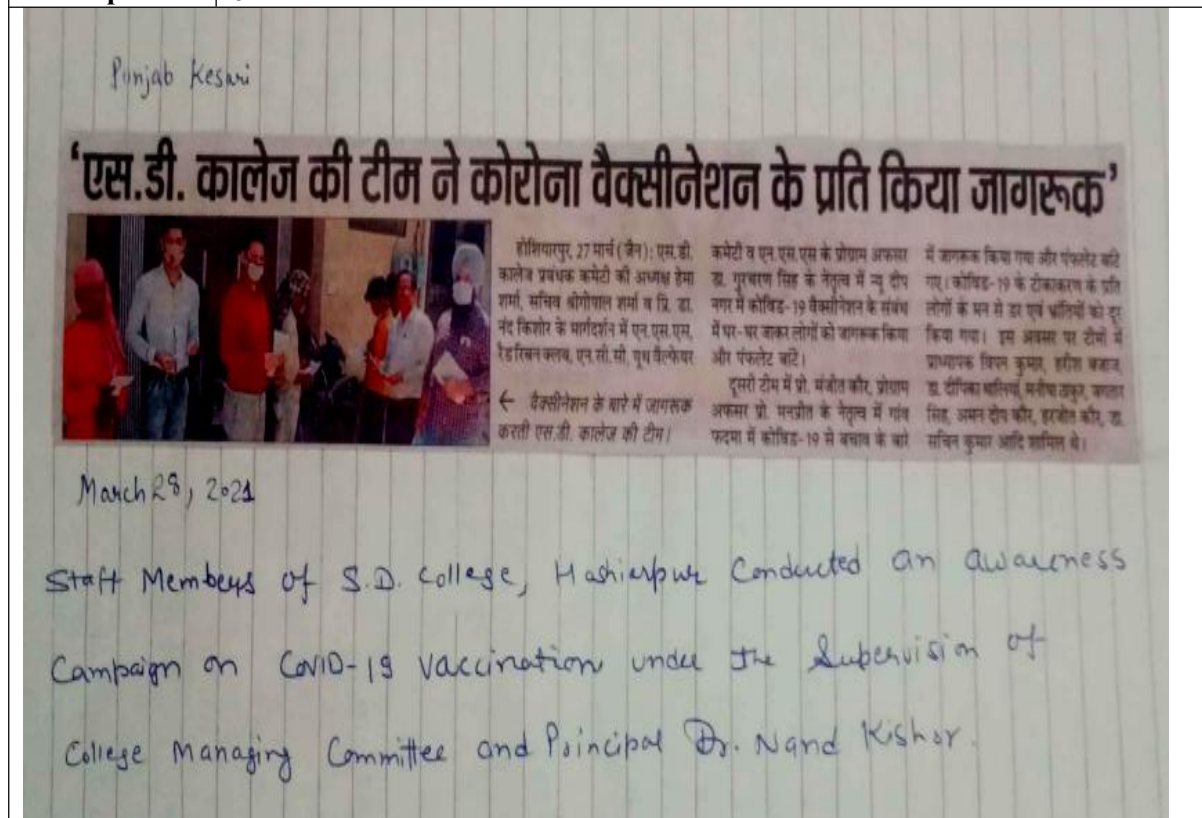 Punjab Kesari
‘एस.डी. कालेज की टीम ने कोरोना वैक्सीनेशन के प्रति किया जागरूक’
होशियारपुर, 27 मार्च (जैन): एस.डी.
कालेज प्रबंधक कमेटी की अध्यक्ष हेमा
शर्मा, सचिव श्रीगोपाल शर्मा व प्रि. डा.
नंद किशोर के मार्गदर्शन में एन.एस.एस.
रैड रिबन क्लब, एन.सी.सी. यूथ वैल्फेयर
← वैक्सीनेशन के बारे में जागरूक
करती एस.डी. कालेज की टीम।
कमेटी व एन.एस.एस के प्रोग्राम अफसर
डा. गुरचरण सिंह के नेतृत्व में न्यू दीप
नगर में कोविड-19 वैक्सीनेशन के संबंध
में घर-घर जाकर लोगों को जागरूक किया
और पंफलेट बांटे।
दूसरी टीम में प्रो. मंजीत कौर, प्रोग्राम
अफसर प्रो. मनप्रीत के नेतृत्व में गांव
फदमा में कोविड-19 से बचाव के बारे
में जागरूक किया गया और पंफलेट बांटे
गए। कोविड-19 के टीकाकरण के प्रति
लोगों के मन से डर एवं भ्रांतियों को दूर
किया गया। इस अवसर पर टीमों में
प्राध्यापक विपन कुमार, हरीश बजाज,
डा. दीपिका वालिया, मनीषा ठाकुर, जगतार
सिंह, अमन दीप कौर, हरजोत कौर, डा.
सचिन कुमार आदि शामिल थे।
March 28, 2021
Staff Members of S.D. College, Hoshiarpur Conducted an awareness
Campaign on COVID-19 vaccination under the Supervision of
College Managing Committee and Principal Dr. Nand Kishor.